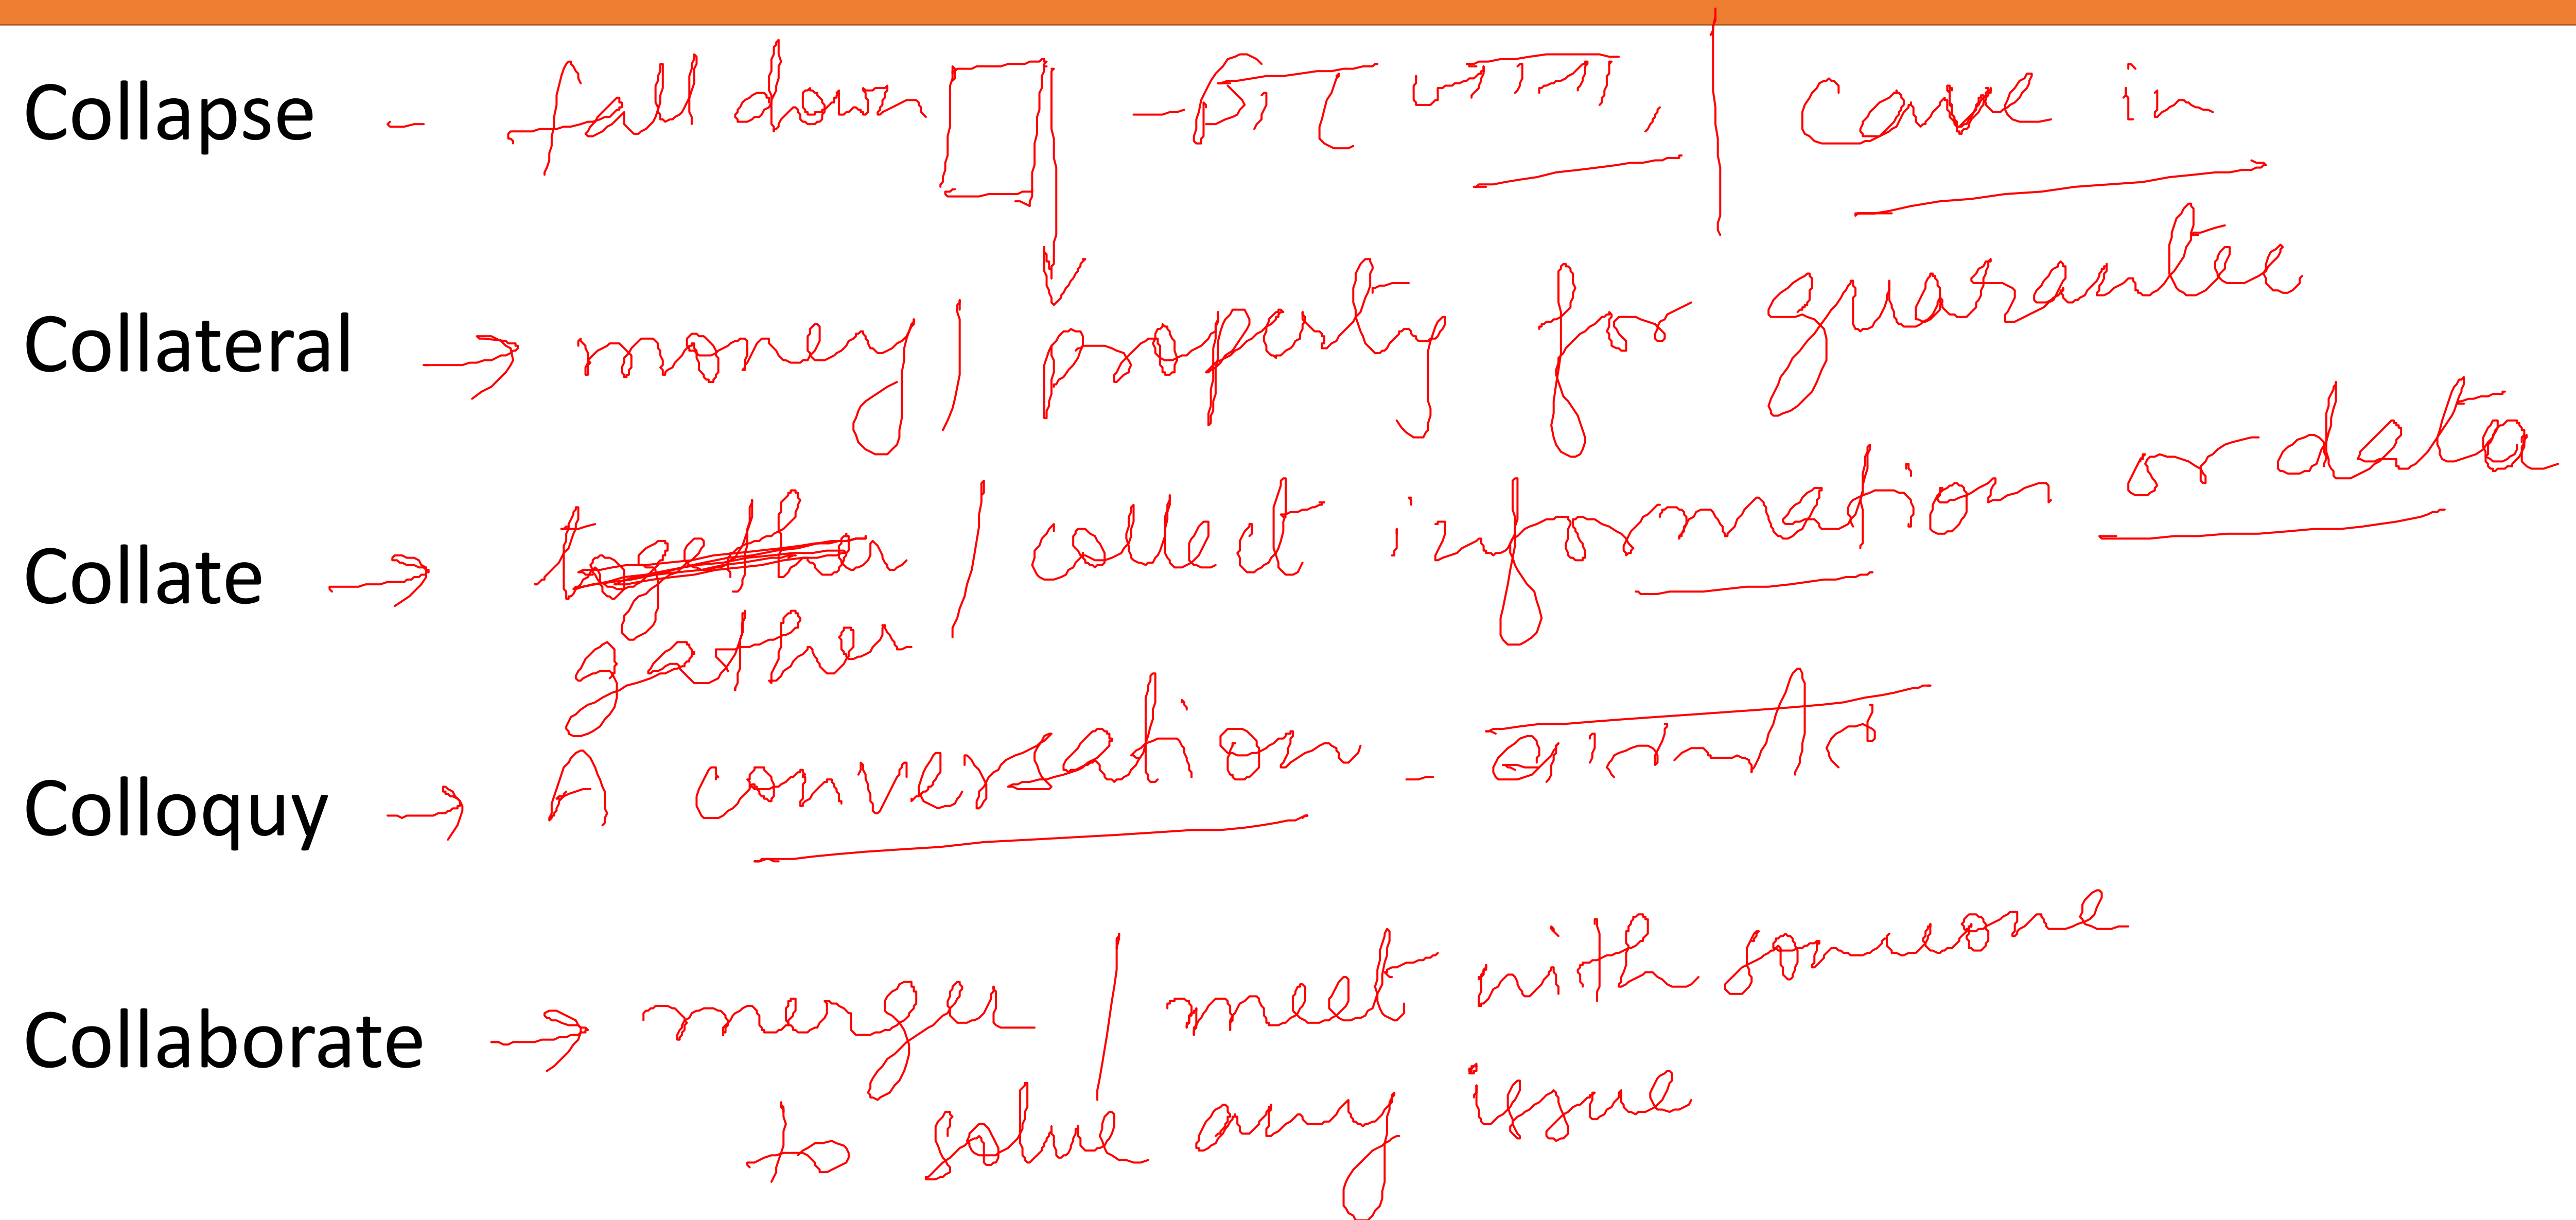 Collapse - fall down - गिर जाना, | cave in
Collateral → money / property for guarantee
Collate → / collect information or data
gather
Colloquy → A conversation -
Collaborate → merger / meet with someone
to solve any issue